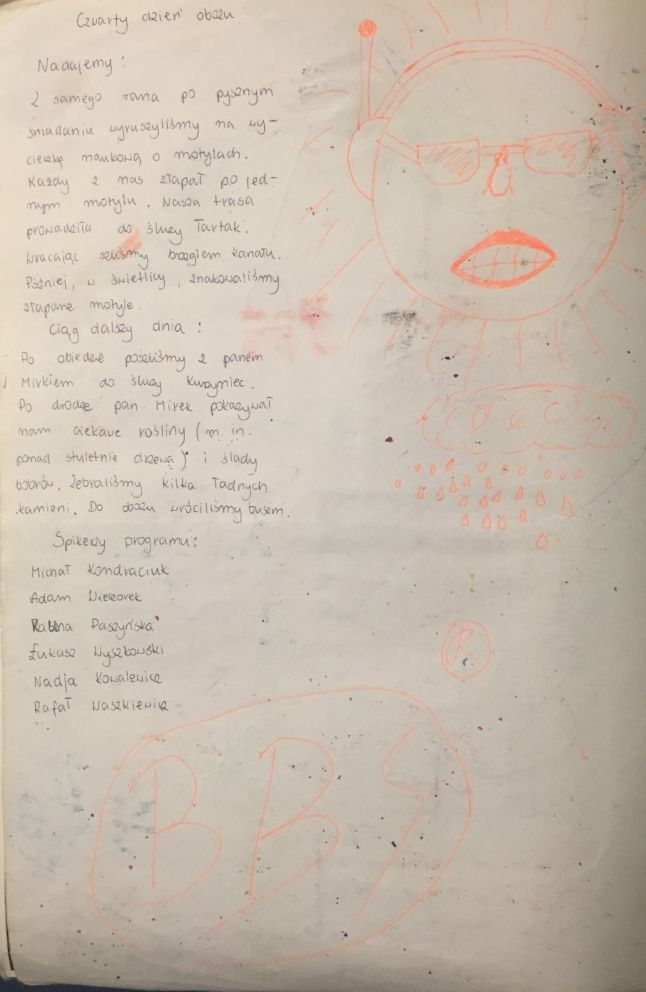 Czwarty dzień obozu
Nadajemy:
Z samego rana po pysznym
śniadaniu wyruszyliśmy na wy-
cieczkę naukową o motylach.
Każdy z nas złapał po jed-
nym motylu. Nasza trasa
prowadziła do śluzy Tartak.
Wracając szliśmy brzegiem kanału.
Później, w świetlicy, znakowaliśmy
złapane motyle.
Ciąg dalszy dnia:
Po obiedzie poszliśmy z panem
Mirkiem do śluzy Kurzyniec.
Po drodze pan Mirek pokazywał
nam ciekawe rośliny (m.in.
ponad stuletnie drzewa) i ślady
bobrów. Zebraliśmy kilka ładnych
kamieni. Do obozu wróciliśmy busem.
Spikerzy programu:
Michał Kondraciuk
Adam Wieczorek
Paszyńska
Łukasz Wyszkowski
Nadja Kowalewicz
Rafał Waszkiewicz
R
BBS